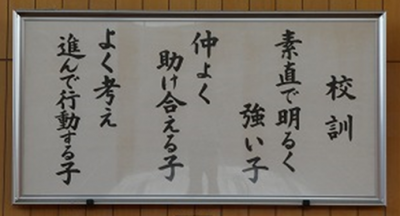 校訓
素直で明るく
強い子
仲よく
助け合える子
よく考え
進んで行動する子